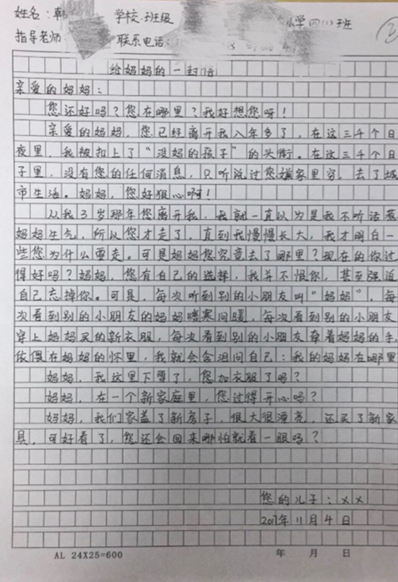 姓名：韩
学校·班级
小学四(1)班
指导老师
联系电话：
给妈妈的一封信
亲爱的妈妈：
您还好吗？您在哪里？我好想您呀！
亲爱的妈妈，您已经离开我八年多了，在这三千个日
夜里，我被扣上了“没妈的孩子”的头衔。在这三千个日
子里，没有您的任何消息，只听说过您嫌家里穷，去了城
市生活。妈妈，您好狠心呀！
从我3岁那年您离开我，我就一直以为是我不听话惹
妈妈生气，所以您才走了，直到我慢慢长大，我才明白一
些您为什么要走。可是妈妈您究竟去了哪里？现在的你过
得好吗？妈妈，您有自己的选择，我并不恨你，甚至强迫
自己忘掉你。可是，每次听到别的小朋友叫“妈妈”，每
次看到别的小朋友的妈妈嘘寒问暖，每次看到别的小朋友
穿上妈妈买的新衣服，每次看到别的小朋友牵着妈妈的手，
依偎在妈妈的怀里，我就会含泪问自己：我的妈妈在哪里
妈妈，我这里下雪了，您加衣服了吗？
妈妈，在一个新家庭里，您过得开心吗？
妈妈，我们家盖了新房子，很大很漂亮，还买了新家
具，可好看了，您还会回来哪怕就看一眼吗？
您的儿子：××
2017年11月4日
AL 24×25=600
年 月 日